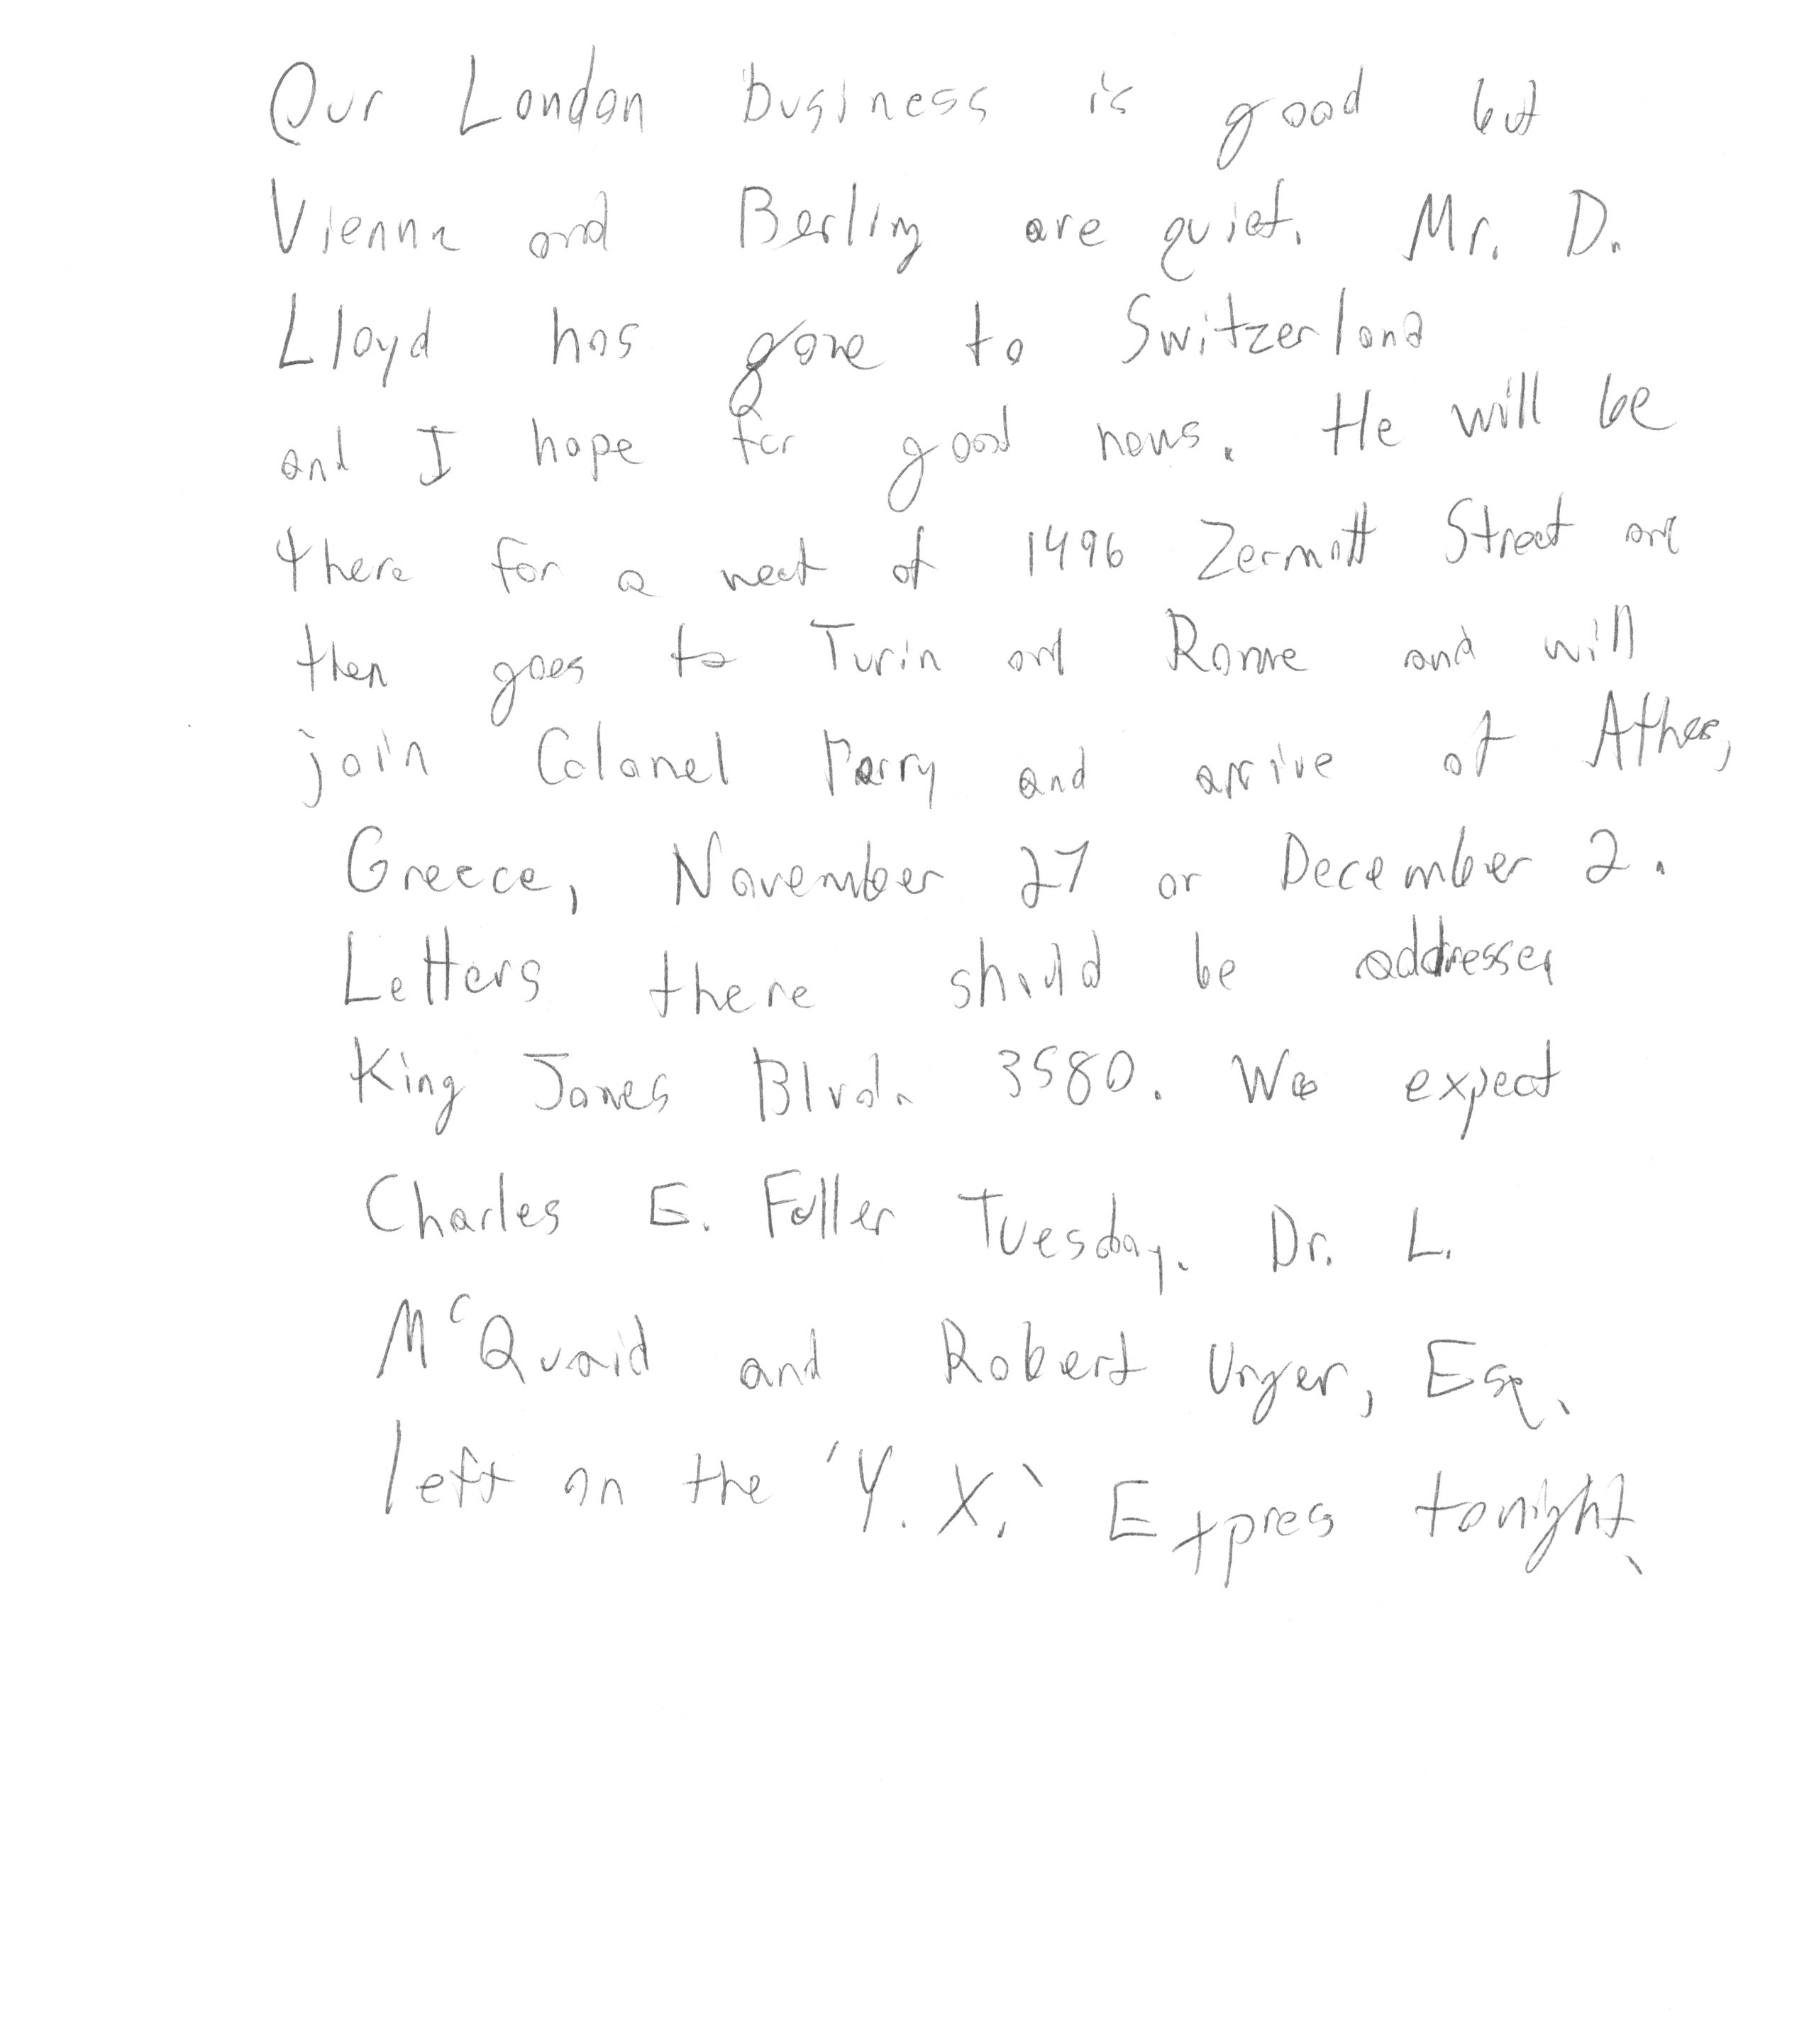 Our London business is good but
Vienna and Berlin are quiet. Mr. D.
Lloyd has gone to Switzerland
and I hope for good news. He will be
there for a week at 1496 Zermott Street and
then goes to Turin and Rome and will
join Colonel Parry and arrive at Athes,
Greece, November 27 or December 2.
Letters there should be addressed
King James Blvd. 3580. We expect
Charles E. Fuller Tuesday. Dr. L.
McQuaid and Robert Unger, Esq.
left on the 'Y. X.' Express tonight.